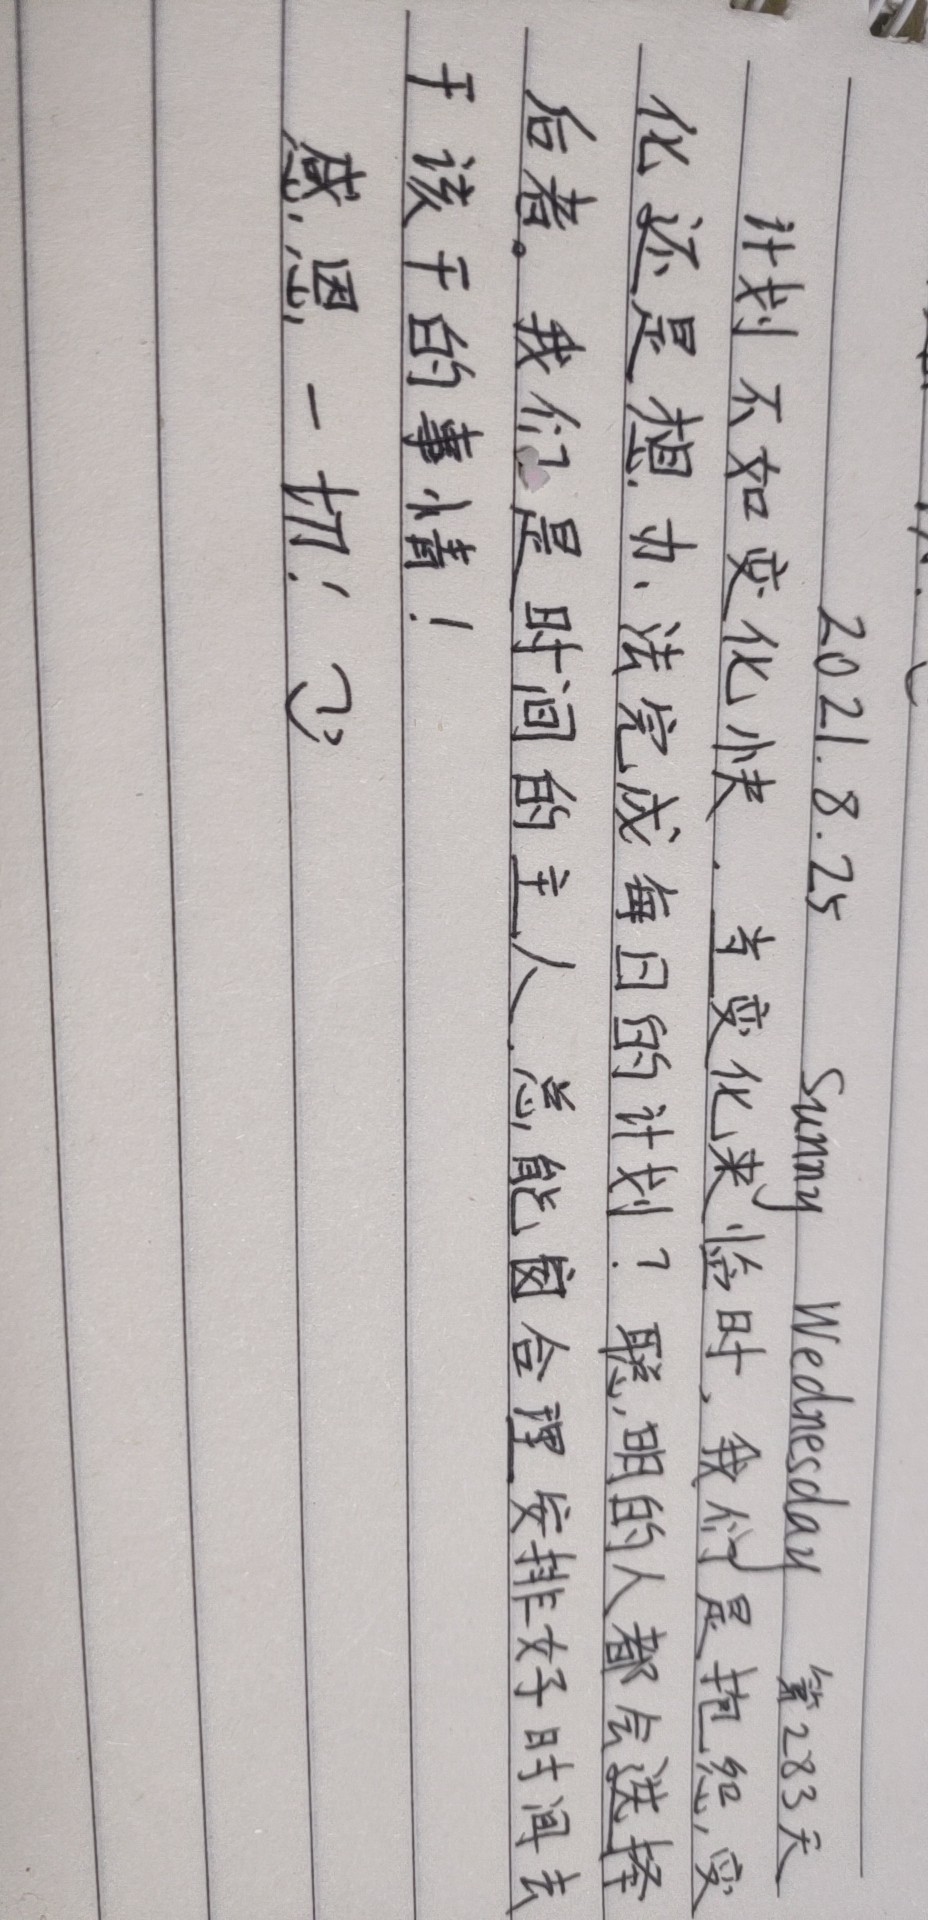 2021.8.25 Sunny Wednesday 第283天
计划不如变化快.当变化来临时,我们是抱怨变
化还是想办法完成每日的计划?聪明的人都会选择
后者。我们是时间的主人.总能够合理安排好时间去
干该干的事情!
感恩一切!